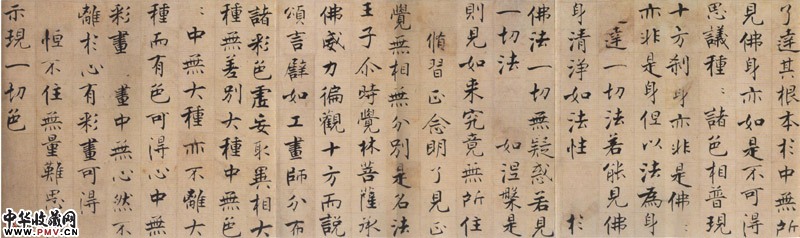 了達其根本於中無所
見佛身亦如是不可得
思議種〻諸色相普現
十方刹身亦非是佛〻
亦非是身但以法為身
達一切法若能見佛
身清淨如法性 於
佛法一切無疑惑若見
一切法 如涅槃是
則見如来究竟無所住
脩習正念明了見正
覺無相無分別是名法
王子尒時覺林菩薩承
佛威力徧觀十方而說
頌言譬如工畫師分布
諸彩色虛妄取異相大
種無差別大種中無色
〻中無大種亦不離大
種而有色可得心中無
彩畫 畫中無心然不
離於心有彩畫可得
恒不住無量難思
示現一切色
中华收藏网
WWW.PMV.CN